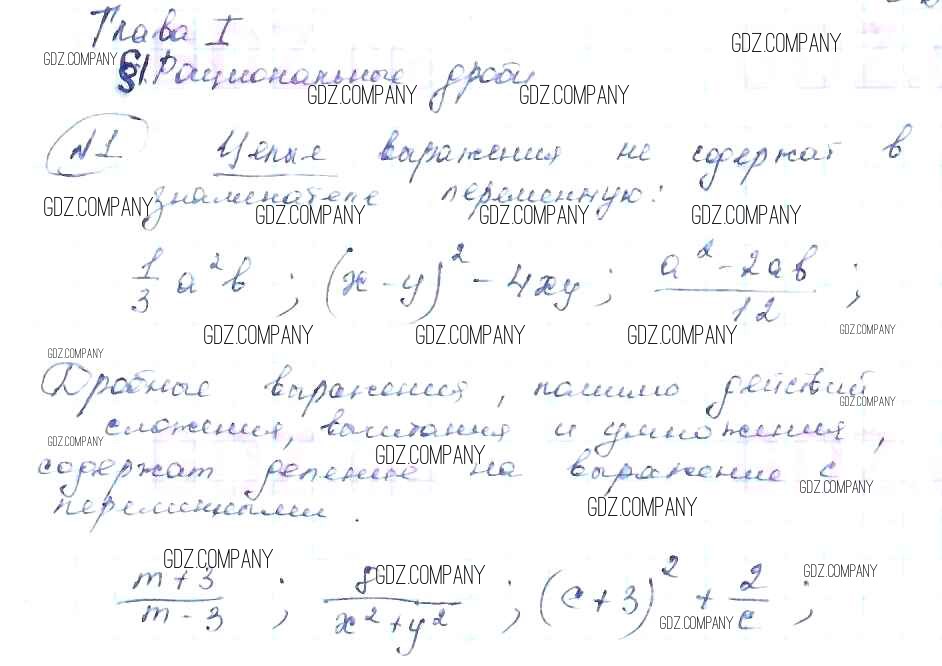 Глава I
GDZ.COMPANY
GDZ.COMPANY
§1. Рациональные дроби
GDZ.COMPANY GDZ.COMPANY
№1 Целые выражения не содержат в
знаменателе переменную:
GDZ.COMPANY GDZ.COMPANY GDZ.COMPANY GDZ.COMPANY
1/3 a²b ; (x-y)² - 4xy ; (a²-2ab)/12 ;
GDZ.COMPANY GDZ.COMPANY GDZ.COMPANY GDZ.COMPANY
GDZ.COMPANY
Дробные выражения, помимо действий
GDZ.COMPANY
сложения, вычитания и умножения,
GDZ.COMPANY GDZ.COMPANY
содержат деление на выражение с
GDZ.COMPANY
переменными.
GDZ.COMPANY
GDZ.COMPANY GDZ.COMPANY GDZ.COMPANY
(m+3)/(m-3) ; 8/(x²+y²) ; (c+3)² + 2/c ;
GDZ.COMPANY